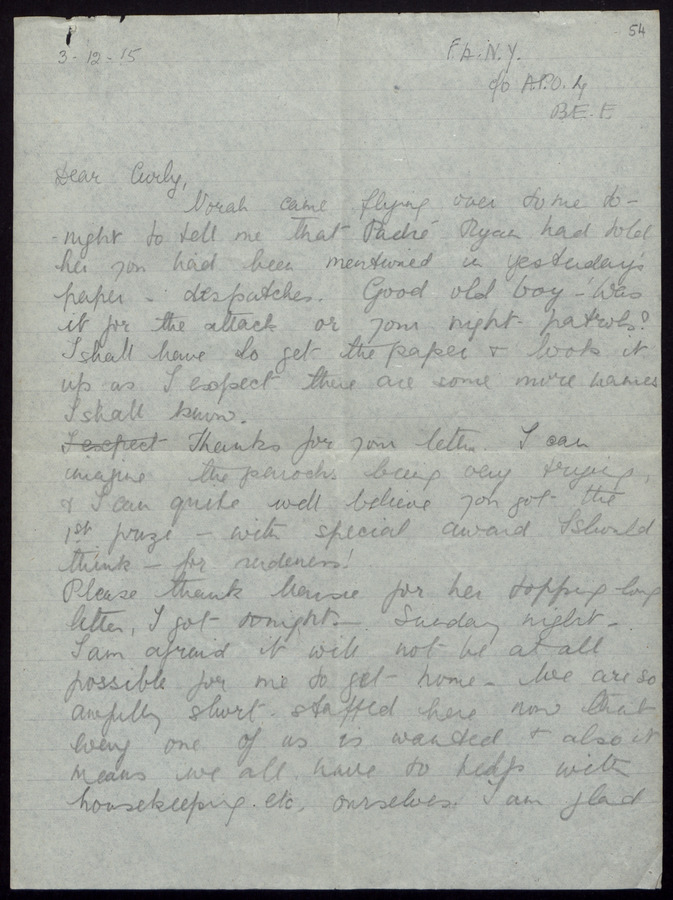 54
3-12-15
F.A.N.Y.
c/o A.P.O. 4
B.E.F.
Dear Curly,
Norah came flying over to me to-
-night to tell me that Padré Ryan had told
her you had been mentioned in yesterday's
paper - despatches. Good old boy - Was
it for the attack or your night-patrols?
I shall have to get the paper & look it
up as I expect there are some more names
I shall know.
I expect Thanks for your letter. I can
imagine the parocks being very trying,
& I can quite well believe you got the
1st prize - with special award I should
think - for rudeness!
Please thank for her topping long
letter, I got tonight - Sunday night -
I am afraid it will not be at all
possible for me to get home - We are so
awfully short-staffed here now that
every one of us is wanted & also it
means we all have to help with
housekeeping etc, ourselves. I am glad